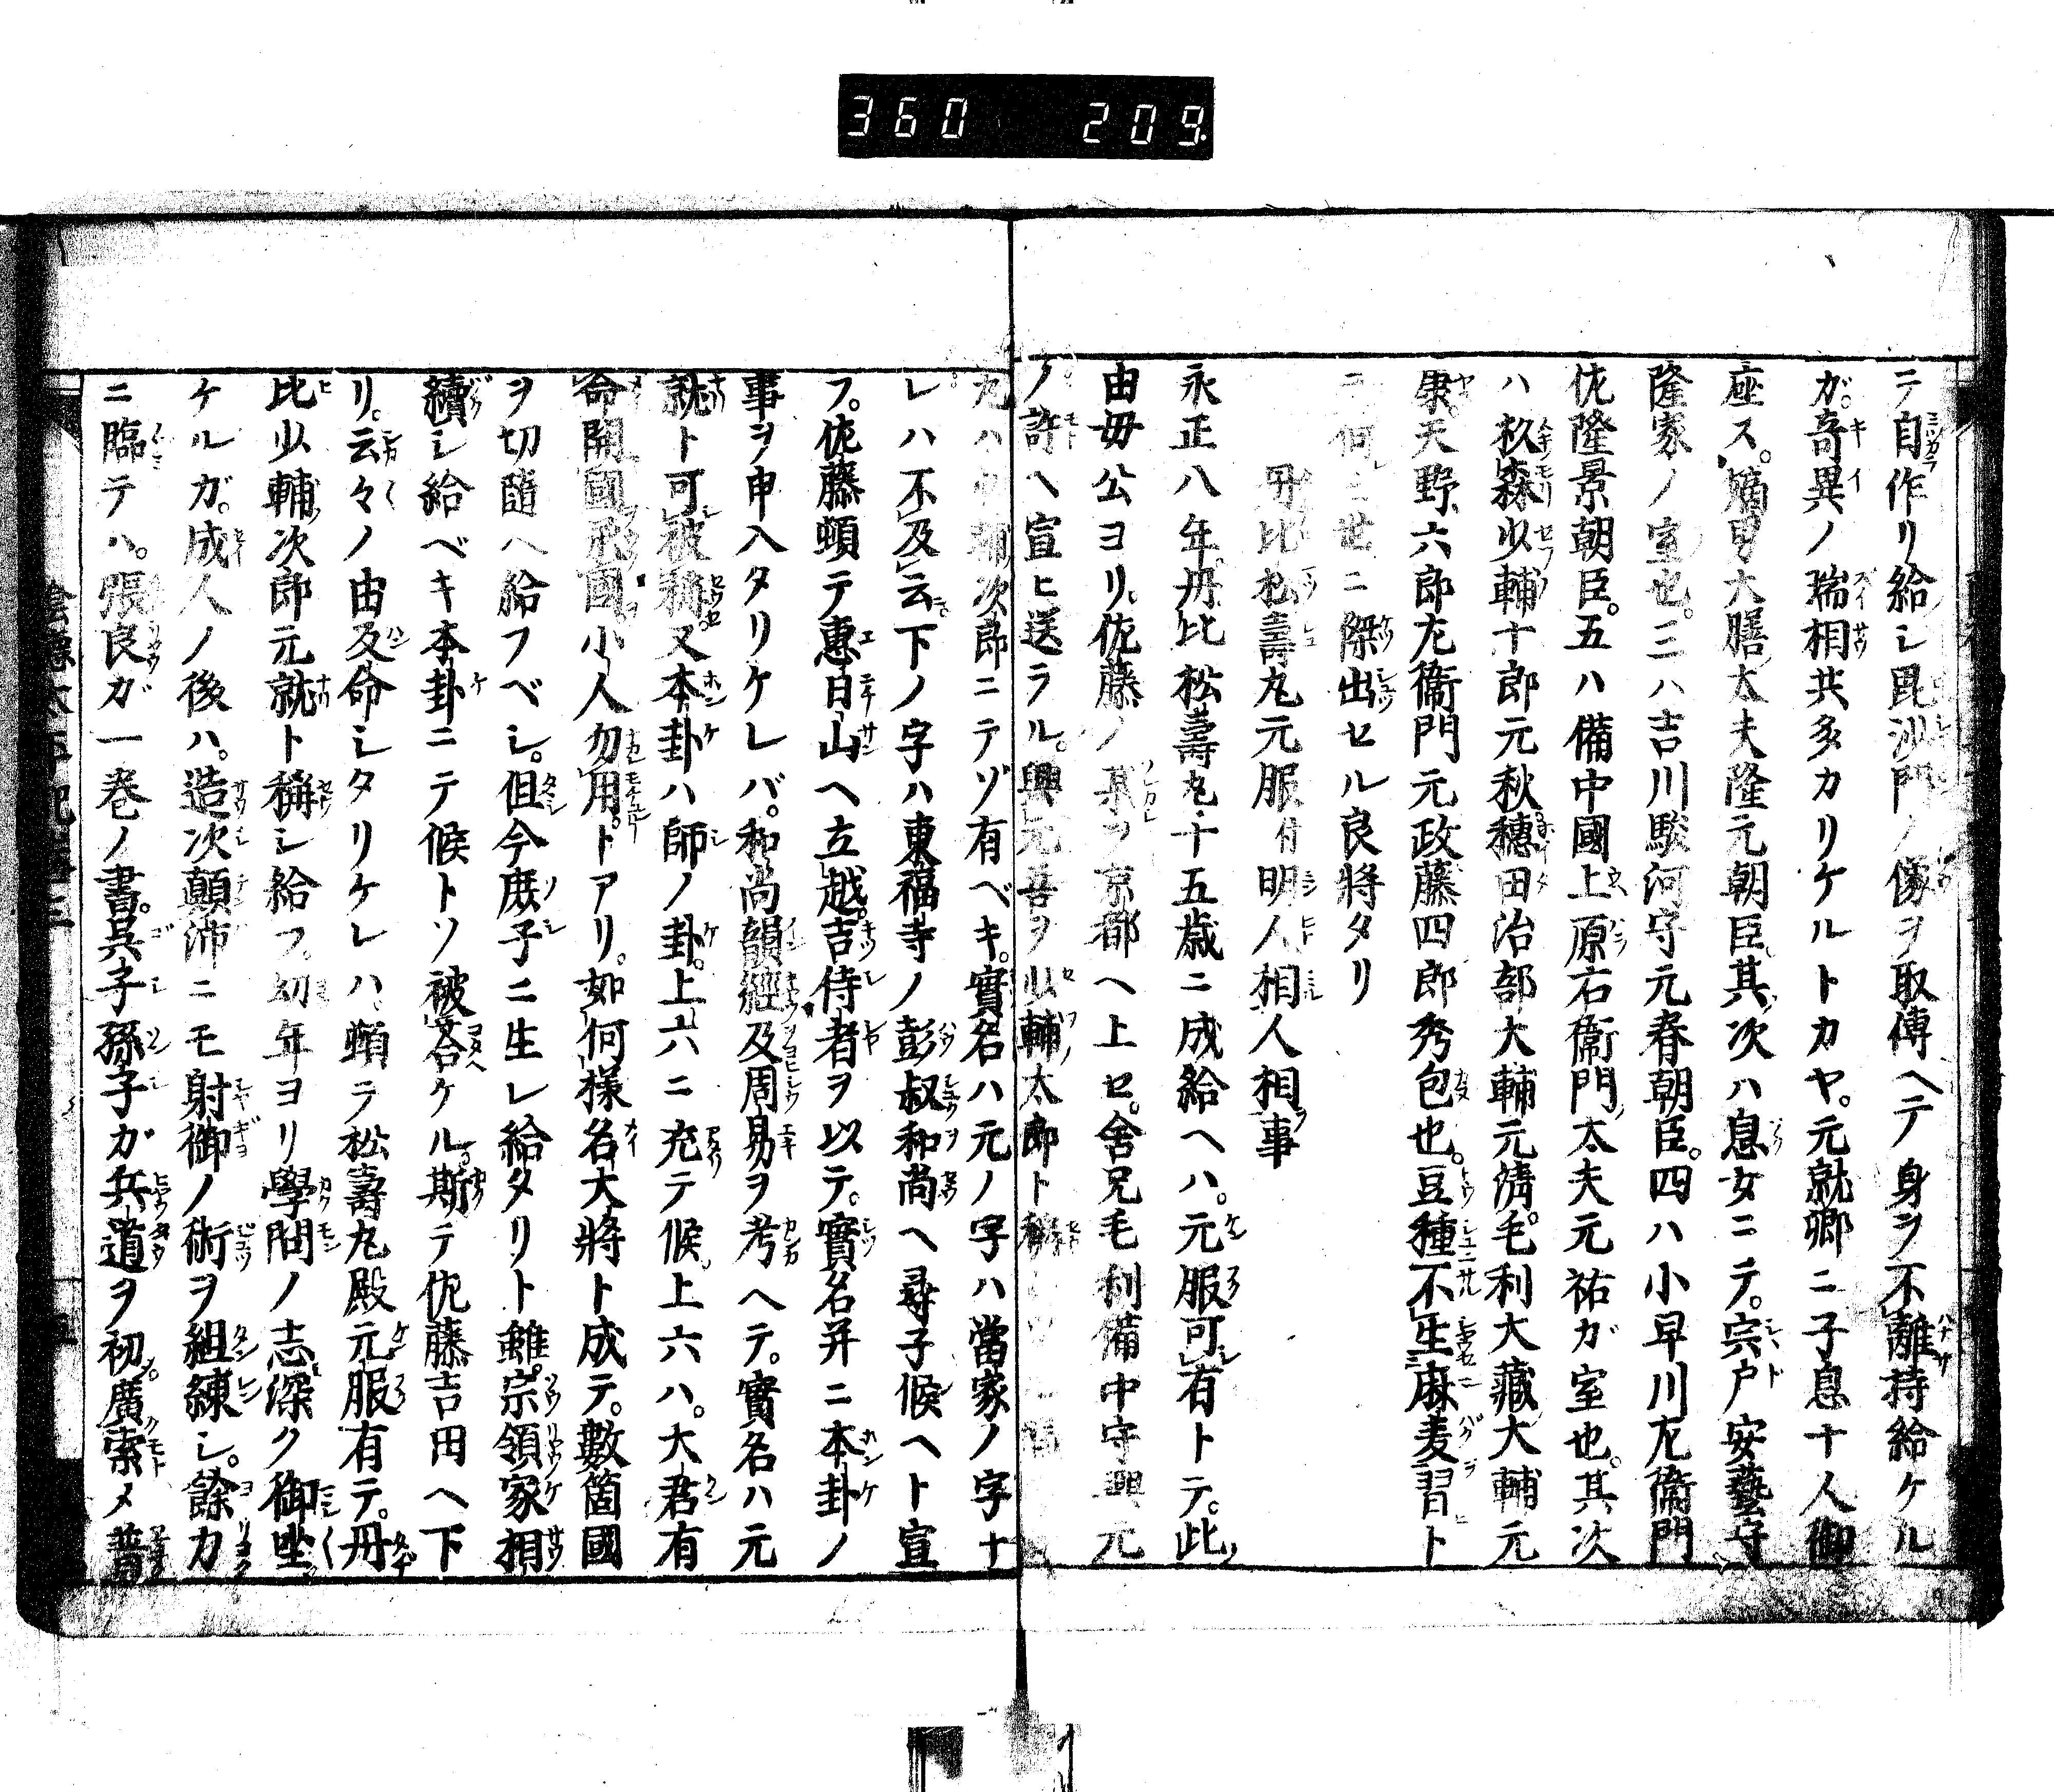 360 209
ニテ自作リ給シ毘沙門ノ像ヲ取傳ヘテ身ヲ不離持給ケル
ガ。奇異ノ瑞相共多カリケルトカヤ。元就卿ニ子息十人御
座ス。嫡男大膳太夫隆元朝臣。其次ハ息女ニテ。宗戸安藝守
隆家ノ室也。三ハ吉川駿河守元春朝臣。四ハ小早川左衞門
佐隆景朝臣。五ハ備中國上原右衞門太夫元祐ガ室也。其次
ハ椙森少輔十郎元秋穗田治部大輔元清。毛利大藏大輔元
康。天野六郎左衞門元政藤四郎秀包也。豆種不生麻麦習ト
テ何レモ世ニ傑出セル良將タリ
丹比松壽丸元服付明人相人相事
永正八年。丹比松壽丸十五歳ニ成給ヘハ。元服可有トテ。此
由毋公ヨリ。佐藤ノ某ヲ京都ヘ上セ。舍兄毛利備中守興元
ノ許ヘ宣ヒ送ラル。興元吾ヲ少輔太郎ト稱
丸ハ少輔次郎ニテゾ有ベキ。實名ハ元ノ字ハ當家ノ字ナ
レハ不及云。下ノ字ハ東福寺ノ彭叔和尚ヘ尋子候ヘト宣
フ。佐藤頓テ惠日山ヘ立越。吉侍者ヲ以テ。實名并ニ本卦ノ
事ヲ申入タリケレバ。和尚韻經及周易ヲ考ヘテ。實名ハ元
就ト可被稱。又本卦ハ師ノ卦。上六ニ充テ候。上六ハ。大君有
命開國承家。小人勿用。トアリ。如何樣名大將ト成テ。數箇國
ヲ切隨ヘ給フベシ。但今庶子ニ生レ給タリト雖。宗領家相
續シ給ベキ本卦ニテ候トソ被荅ケル。斯テ佐藤吉田ヘ下
リ。云々ノ由反命シタリケレハ。頓テ松壽丸殿元服有テ。丹
比少輔次郎元就ト稱シ給フ。幼年ヨリ學問ノ志深ク御坐
ケルガ。成人ノ後ハ。造次顛沛ニモ射御ノ術ヲ組練シ。餘力
ニ臨テハ。張良ガ一巻ノ書。呉子孫子ガ兵道ヲ初。廣索メ普
陰德太平記